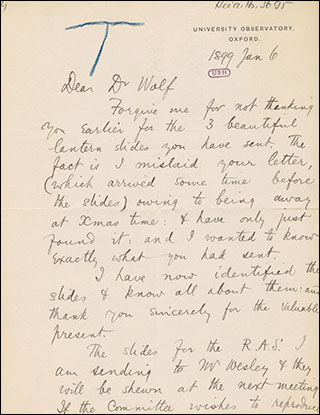 UNIVERSITY OBSERVATORY,
OXFORD.
1899 Jan 6
UBH
Dear Dr Wolf
Forgive me for not thanking
you earlier for the 3 beautiful
lantern slides you have sent. The
fact is I mislaid your letter,
(which arrived some time before
the slides) owing to being away
at Xmas time: & have only just
found it: and I wanted to know
exactly what you had sent.
I have now identified the
slides & know all about them: and
thank you sincerely for the valuable
present.
The slides for the R.A.S. I
am sending to Mr Wesley & they
will be shewn at the next meeting
If the Committee wishes to reproduce